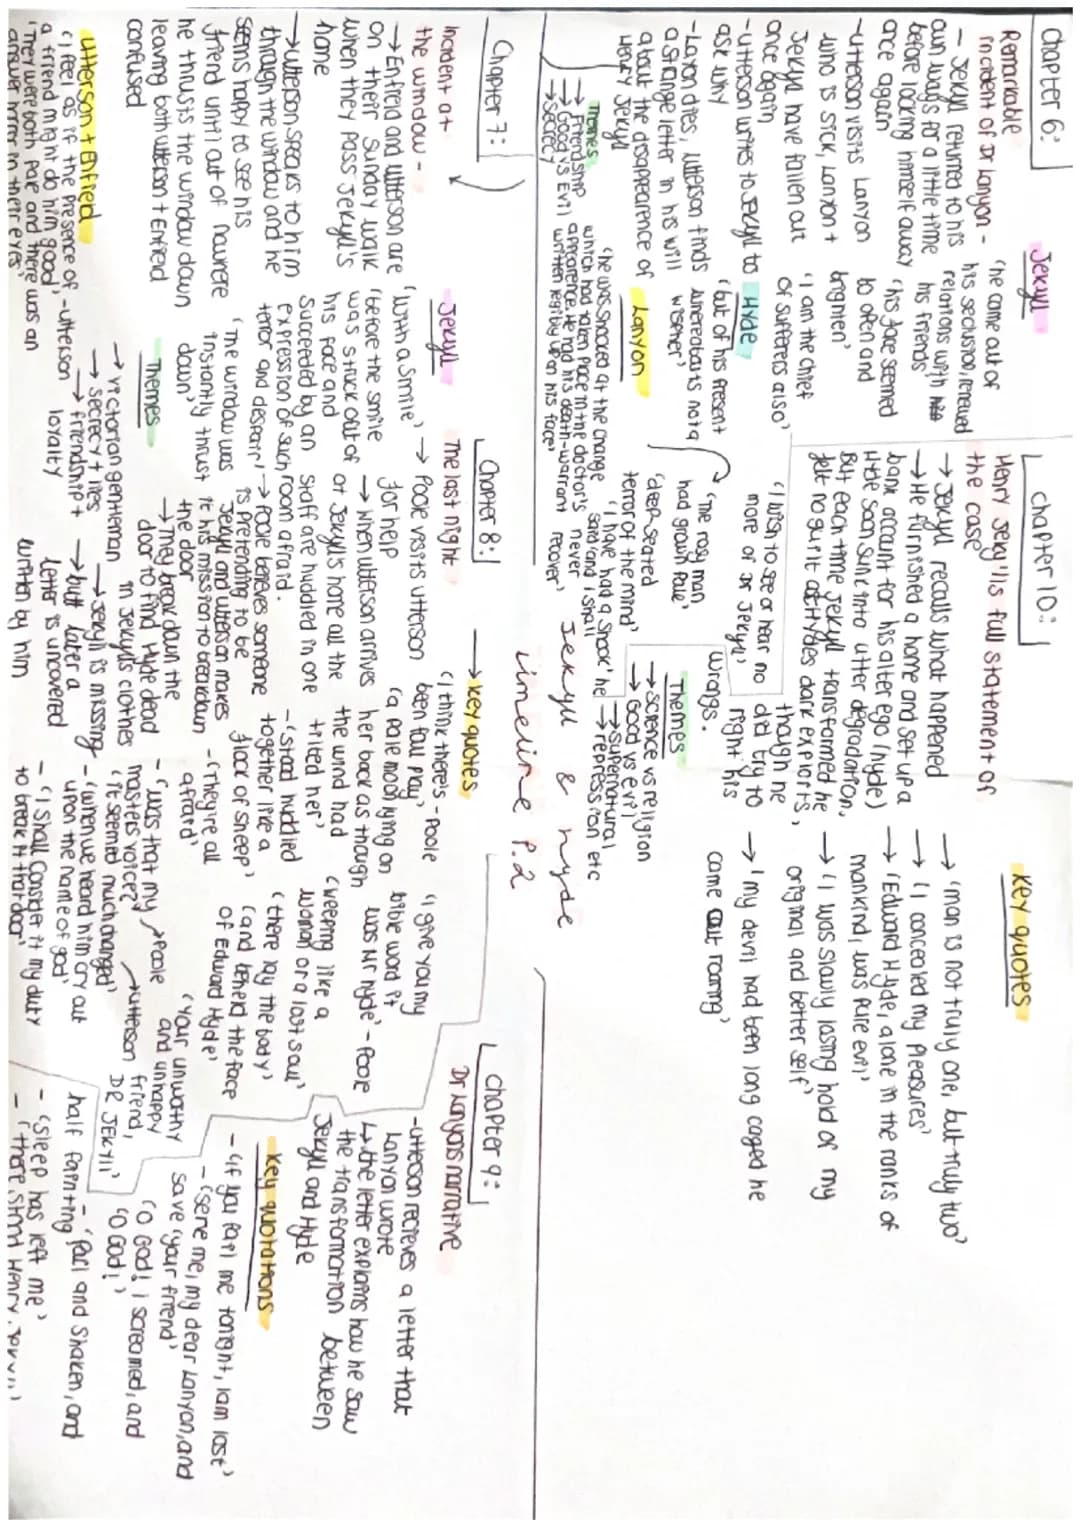 Chapter 6:
Remarkable
incident of Dr Lanyon -
- Jekyll returned to his
own ways for a little time
before locking himself away
once again
- Utterson visits Lanyon
who is sick, Lanyon +
Jekyll have fallen out
once again
- Utterson writes to Jekyll to
ask why
- Lanyon dies, Utterson finds
a strange letter in his will
about the disapearence of
Henry Jekyll
Themes
→ Friendship
→ Good vs Evil
→ Secrecy
Jekyll
'he came out of
his seclusion, renewed
relations with
his friends'
'his face seemed
to open and
brighten'
'I am the chief
of sufferers also'
Hyde
'but of his present
whereabouts not a
wisper'
Lanyon
'he was shocked at the change
which had taken place in the doctor's
apperence. He had his death-warrant
written legibly upon his face'
'I wish to see or hear no
more of Dr Jekyll'
'the rosy man
had grown pale'
'deep-seated
terror of the mind'
'I have had a shock' he
said 'and I shall
never
recover'
Chapter 10:
Henry Jekyll's full statement of
the case
→ Jekyll recalls what happened
→ He furnished a home and set up a
bank account for his alter ego (hyde)
Hyde soon sunk into utter degradation,
But each time Jekyll transformed he
felt no guilt at Hydes dark exploits,
though he
did try to
right his
wrongs.
Themes
→ science vs religion
→ Good vs evil
→ supernatural
→ repression etc
Key quotes
→ 'man is not truly one, but truly two'
→ 'I concealed my pleasures'
→ 'Edward Hyde, alone in the ranks of
mankind, was pure evil'
→ 'I was slowly losing hold of my
original and better self'
→ 'my devil had been long caged he
came out roaring'
Jekyll & Hyde
timeline P.2
Chapter 7:
Incident at
the window -
→ Enfield and Utterson are
on their Sunday walk
when they pass Jekyll's
home
→ Utterson speaks to him
through the window and he
seems happy to see his
friend until out of nowhere
he thrusts the window down
leaving both Utterson + Enfield
confused
Utterson + Enfield
'I feel as if the presence of
a friend might do him good' - Utterson
'They were both pale and there was an
answer horror in their eyes'
Jekyll
'with a smile'
'before the smile
was struck out of
his face and
succeeded by an
expression of such
terror and despair'
'The window was
instantly thrust
down'
Themes
→ victorian gentleman
→ secrecy + lies
→ friendship +
loyalty
Chapter 8:
The last night
→ Poole visits Utterson
for help
→ When Utterson arrives
at Jekyll's home all the
staff are huddled in one
room afraid.
→ Poole believes someone
is pretending to be
Jekyll and Utterson makes
it his mission to breakdown
the door
→ They break down the
door to find Hyde dead
in Jekyll's clothes
→ Jekyll is missing
→ but later a
letter is uncovered
written by him
→ Key quotes
'I think there's
been foul play' - Poole
'a pale moon lying on
her back as though
the wind had
tilted her'
- 'stood huddled
together like a
flock of sheep'
- 'They're all
afraid'
- 'was that my
masters voice?' → Poole
'it seemed much changed' → Utterson
- 'when we heard him cry out
upon the name of god'
- 'I shall consider it my duty
to break it that door'
'I give you my
bible word it
was Mr Hyde' - Poole
'weeping like a
woman or a lost soul'
'there lay the body'
'and beheld the face
of Edward Hyde'
'Your unworthy
and unhappy
friend,
DR JEKYLL'
Chapter 9:
Dr Lanyons narrative
- Utterson recieves a letter that
Lanyon wrote
↳ the letter explains how he saw
the transformation between
Jekyll and Hyde
Key quotations
- 'if you fail me tonight, I am lost'
- 'Serve me, my dear Lanyon, and
save your friend'
'O God! I screamed, and
'O God!'
- 'Pale and shaken, and
half fainting
- 'Sleep has left me'
- 'there stood Henry Jekyll'